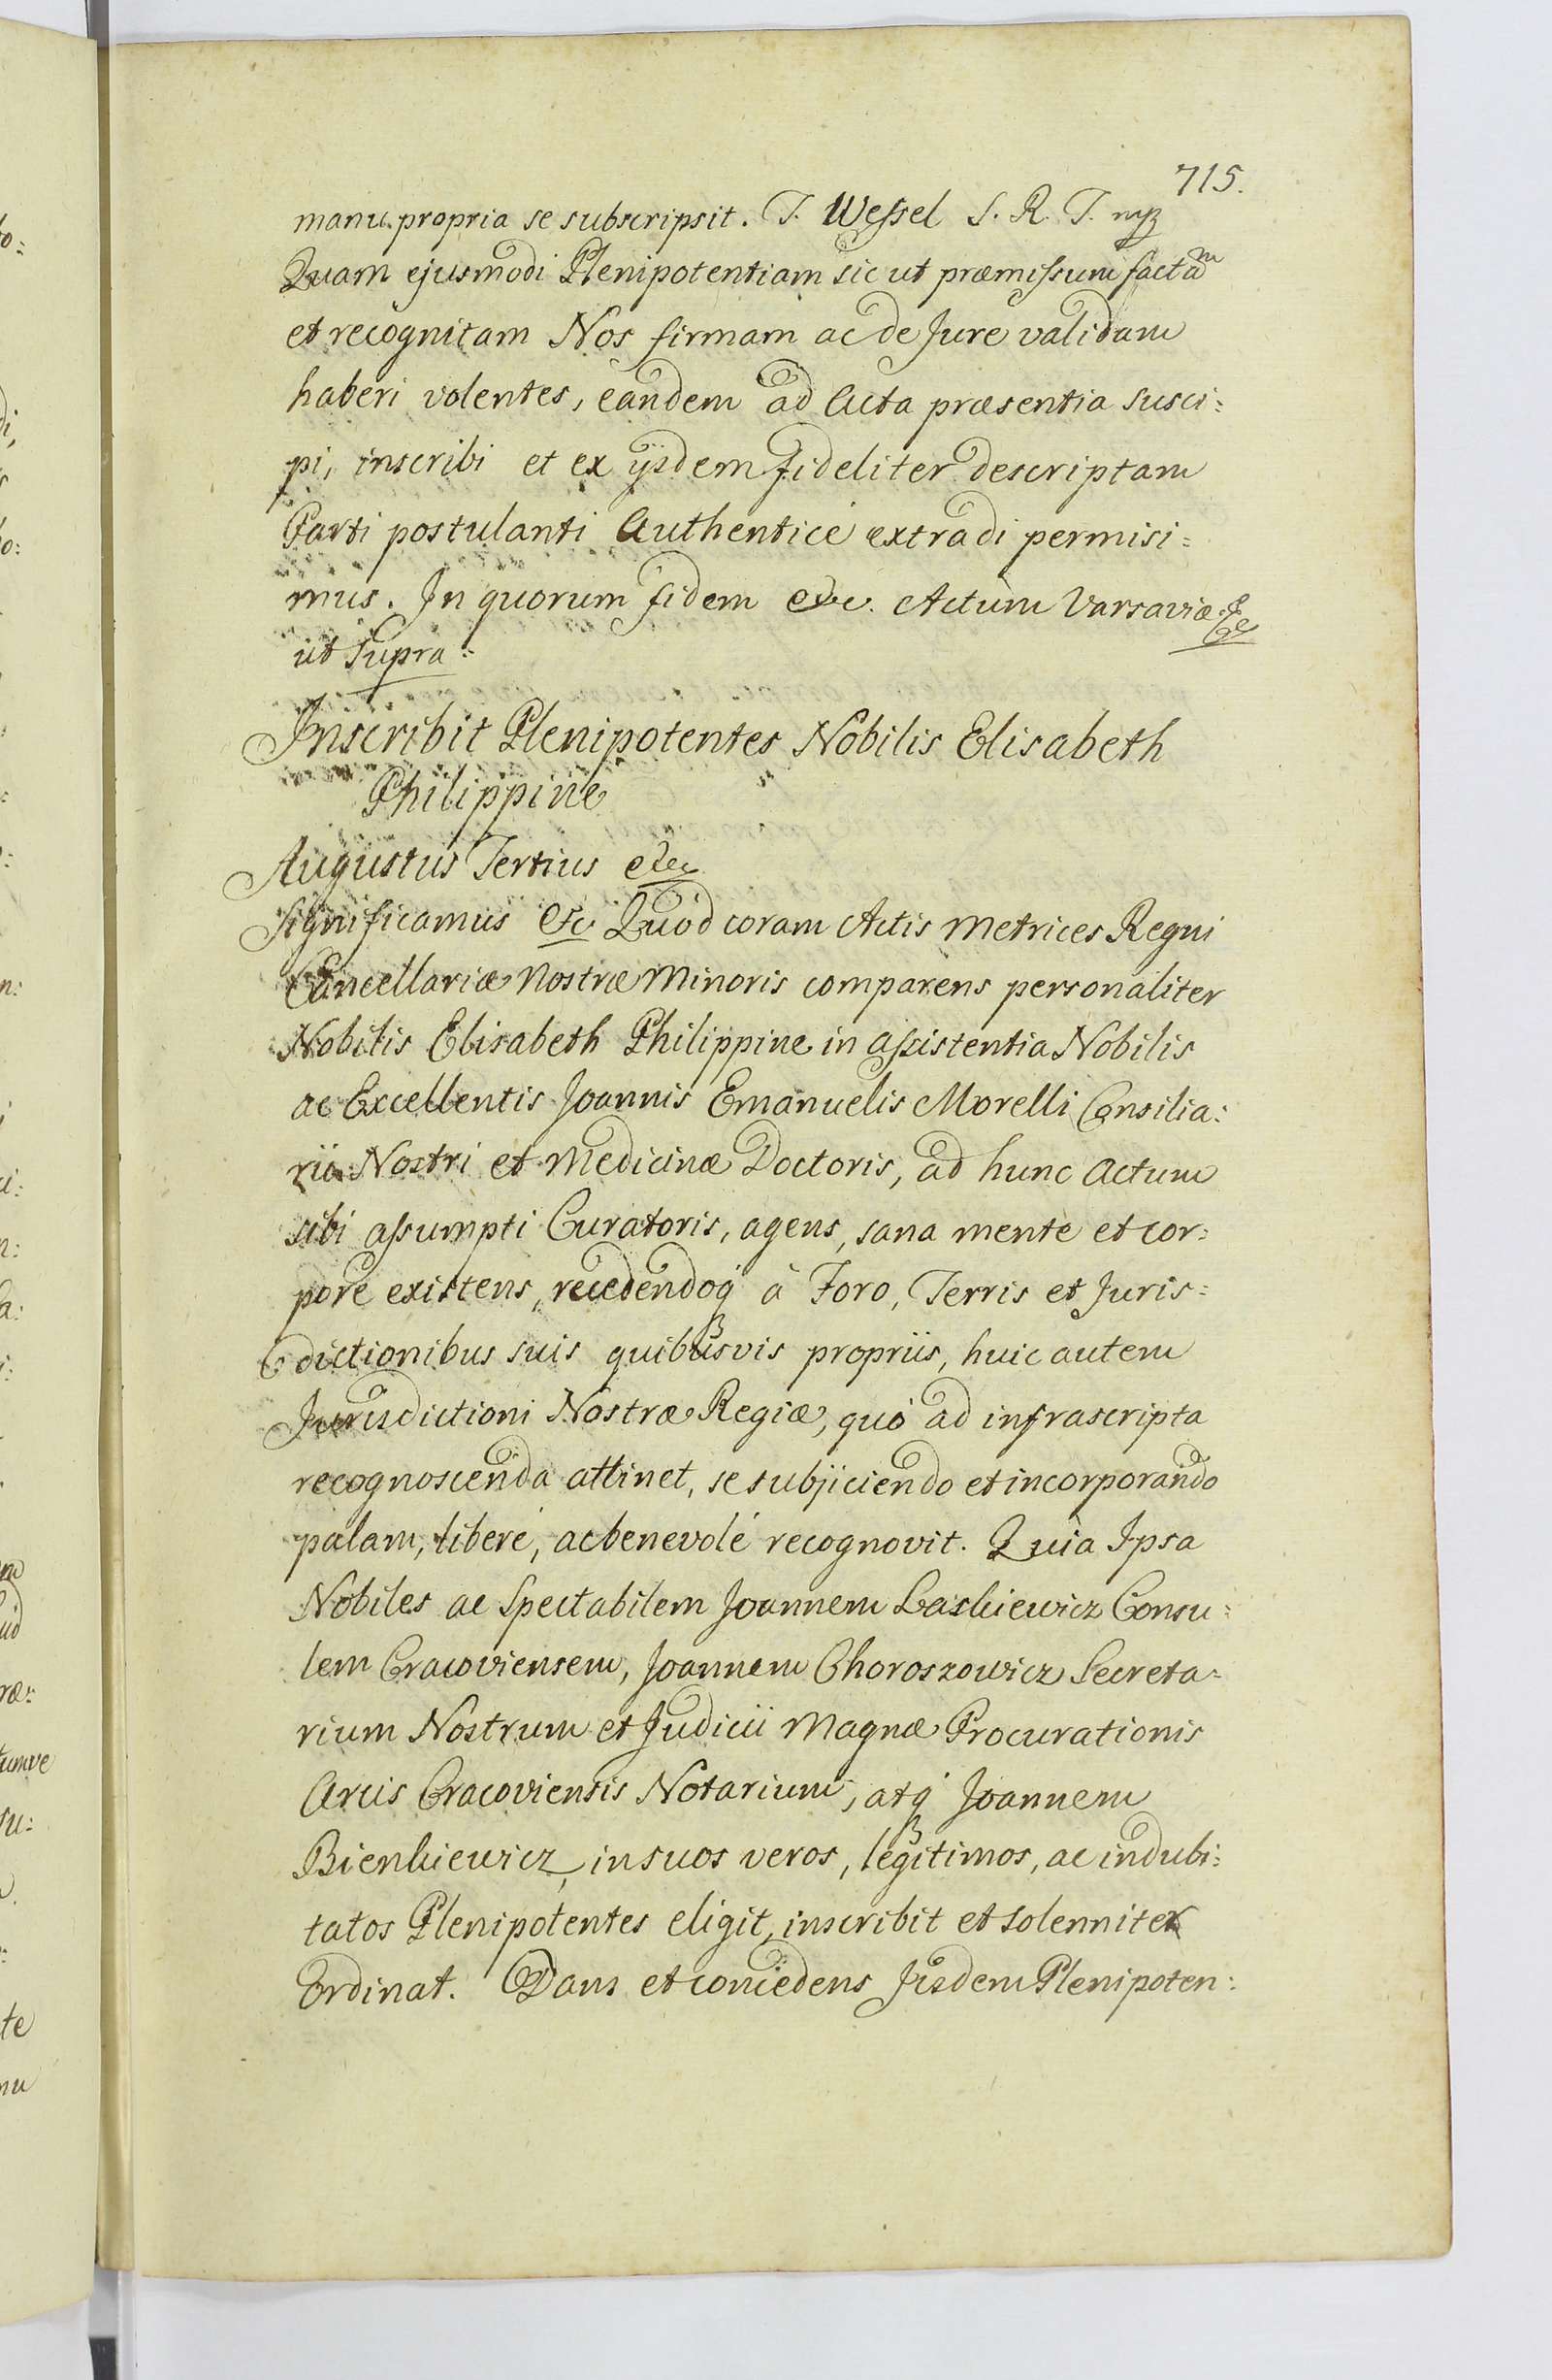 715.
manu propria se subscripsit. T. Wessel S. R. T. mp
Quam ejusmodi Plenipotentiam sic ut præmissum factam
et recognitam Nos firmam ac de Jure validam
haberi volentes, eandem ad Acta præsentia susci:
pi, inscribi et ex ijsdem fideliter descriptam
Parti postulanti Authenticè extradi permisi:
mus. In quorum fidem etc. Actum Varsaviæ etc
ut Supra:
Inscribit Plenipotentes Nobilis Elisabeth
Philippine
Augustus Tertius etc
Significamus etc Quod coram Actis Metrices Regni
Cancellariæ Nostræ Minoris comparens personaliter
Nobilis Elisabeth Philippine in assistentia Nobilis
ac Excellentis Joannis Emanuelis Morelli Consilia:
rii Nostri et Medicinæ Doctoris, ad hunc Actum
sibi assumpti Curatoris, agens, sana mente et cor:
pore existens, recedendoq à Foro, Terris et Juris:
dictionibus suis quibusvis propriis, huic autem
Jurisdictioni Nostræ Regiæ, quò ad infrascripta
recognoscenda attinet, se subjiciendo et incorporando
palam, liberé, ac benevolé recognovit. Quia Ipsa
Nobiles ac Spectabilem Joannem Laskiewicz Consu:
lem Cracoviensem, Joannem Choroszowicz Secreta:
rium Nostrum et Judicii Magnæ Procurationis
Arcis Cracoviensis Notarium, atq Joannem
Bienkiewicz, in suos veros, legitimos, ac indubi:
tatos Plenipotentes eligit, inscribit et solenniter
Ordinat. Dans et concedens Iisdem Plenipoten: